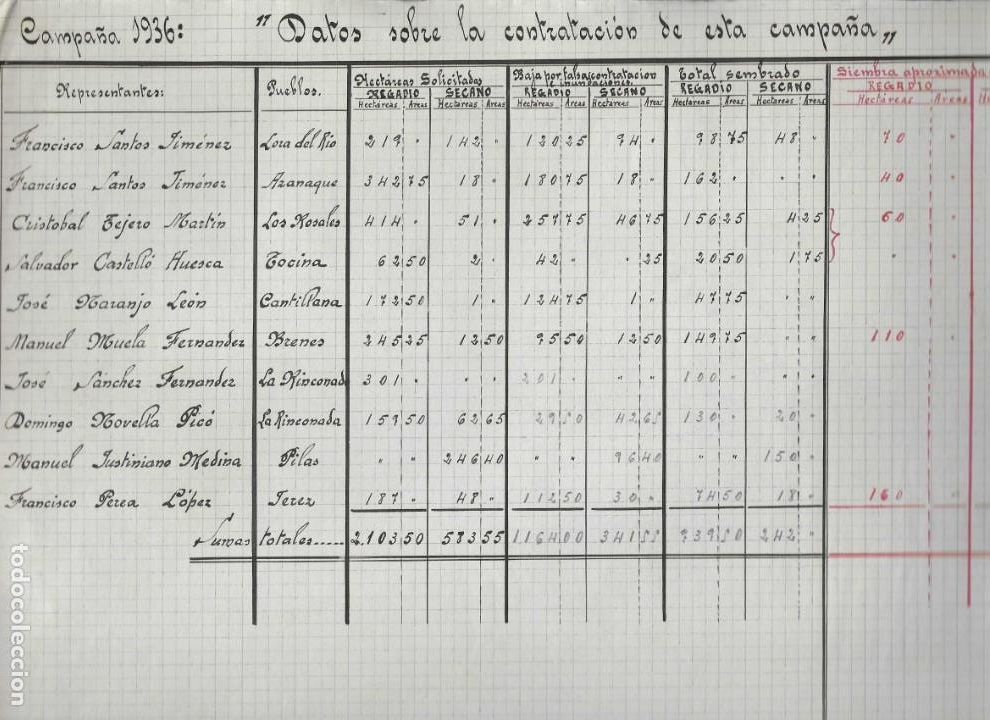 Campaña 1936: "Datos sobre la contratación de esta campaña"
Representantes: Pueblos. Hectáreas Solicitadas Baja por falsa contratación e inundaciones Total sembrado Siembra aproximada
REGADIO SECANO REGADIO SECANO REGADIO SECANO REGADIO
Hectareas Areas Hectareas Areas Hectareas Areas Hectareas Areas Hectareas Areas Hectareas Areas Hectareas Areas
Francisco Santos Jiménez Lora del Río 219 " 142 " 120 25 94 " 98 75 48 " 70 "
Francisco Santos Jiménez Azanaque 342 75 18 " 180 75 18 " 162 " " " 40 "
Cristobal Tejero Martín Los Rosales 414 " 51 " 257 75 46 75 156 25 4 25 60 "
Salvador Castelló Huesca Tocina 62 50 2 " 42 " " 25 20 50 1 75 " "
José Naranjo León Cantillana 172 50 1 " 124 75 1 " 47 75 " "
Manuel Muela Fernandez Brenes 245 25 12 50 95 50 12 50 149 75 " " 110 "
José Sánchez Fernandez La Rinconad 301 " " " 201 " " " 100 " " "
Domingo Novella Picó La Rinconada 159 50 62 65 29 50 42 65 130 " 20 "
Manuel Justiniano Medina Pilas " " 246 40 " " 96 40 " " 150 "
Francisco Perea López Jerez 187 " 48 " 112 50 30 " 74 50 18 " 160 "
Sumas totales..... 2.103 50 583 55 1164 00 341 55 939 50 242 "
todocoleccion